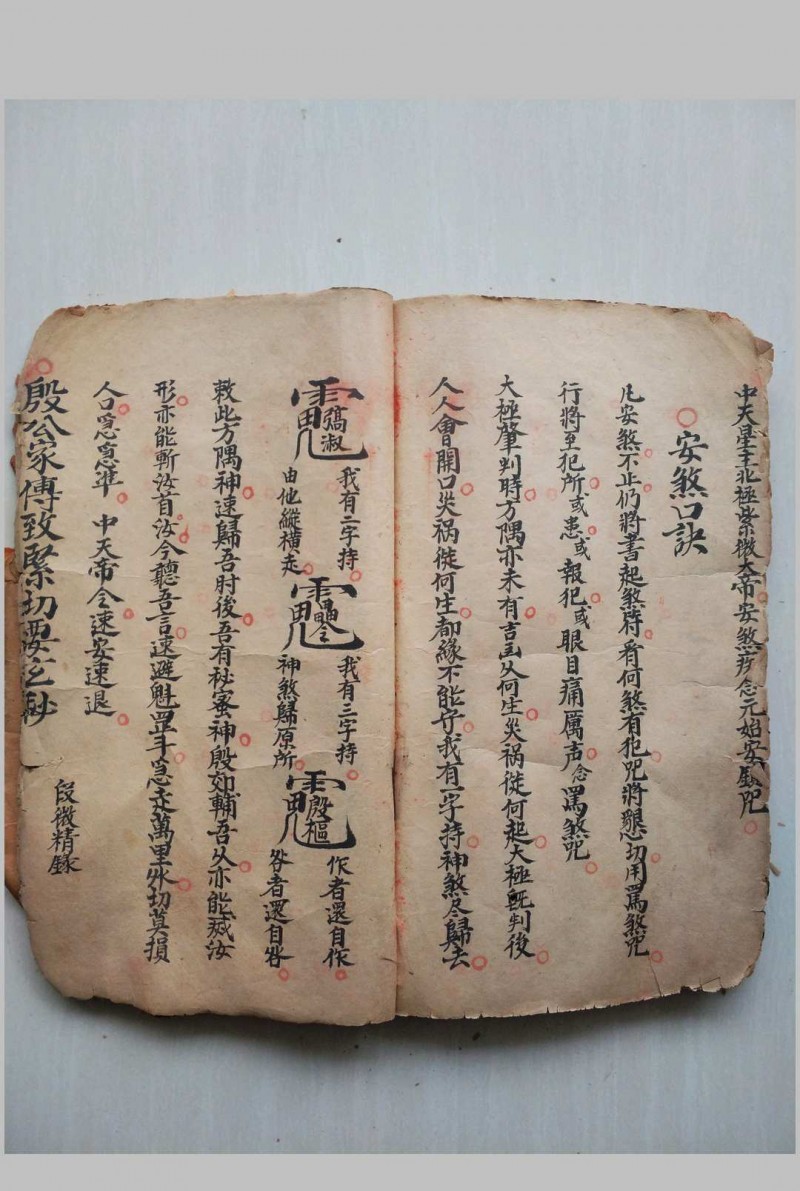 中天星主北極紫微大帝安煞疗念元始安鎮咒
安煞口訣
凡安煞不止仍將書起煞符看何煞有犯咒將懇切用罵煞咒
行將至犯所或患或報犯或眼目痛厲声念罵煞咒
大極肇判時方隅亦未有吉凶从何生災祸從何起大極既判後
人人會開口災祸從何生都緣不能守我有一字持神煞尽歸去
我有二字持
由他縱橫走
我有三字持
神煞歸原所
作者還自作
咎者還自咎
敕此方隅神速歸吾肘後吾有秘蜜神殷郊輔吾从亦能滅汝
形亦能斬汝首汝今聽吾言速避魁罡斗急走萬里外切莫損
人口急急準 中天帝令速安速退
殷公家傳致緊切要玄秘
段微精錄